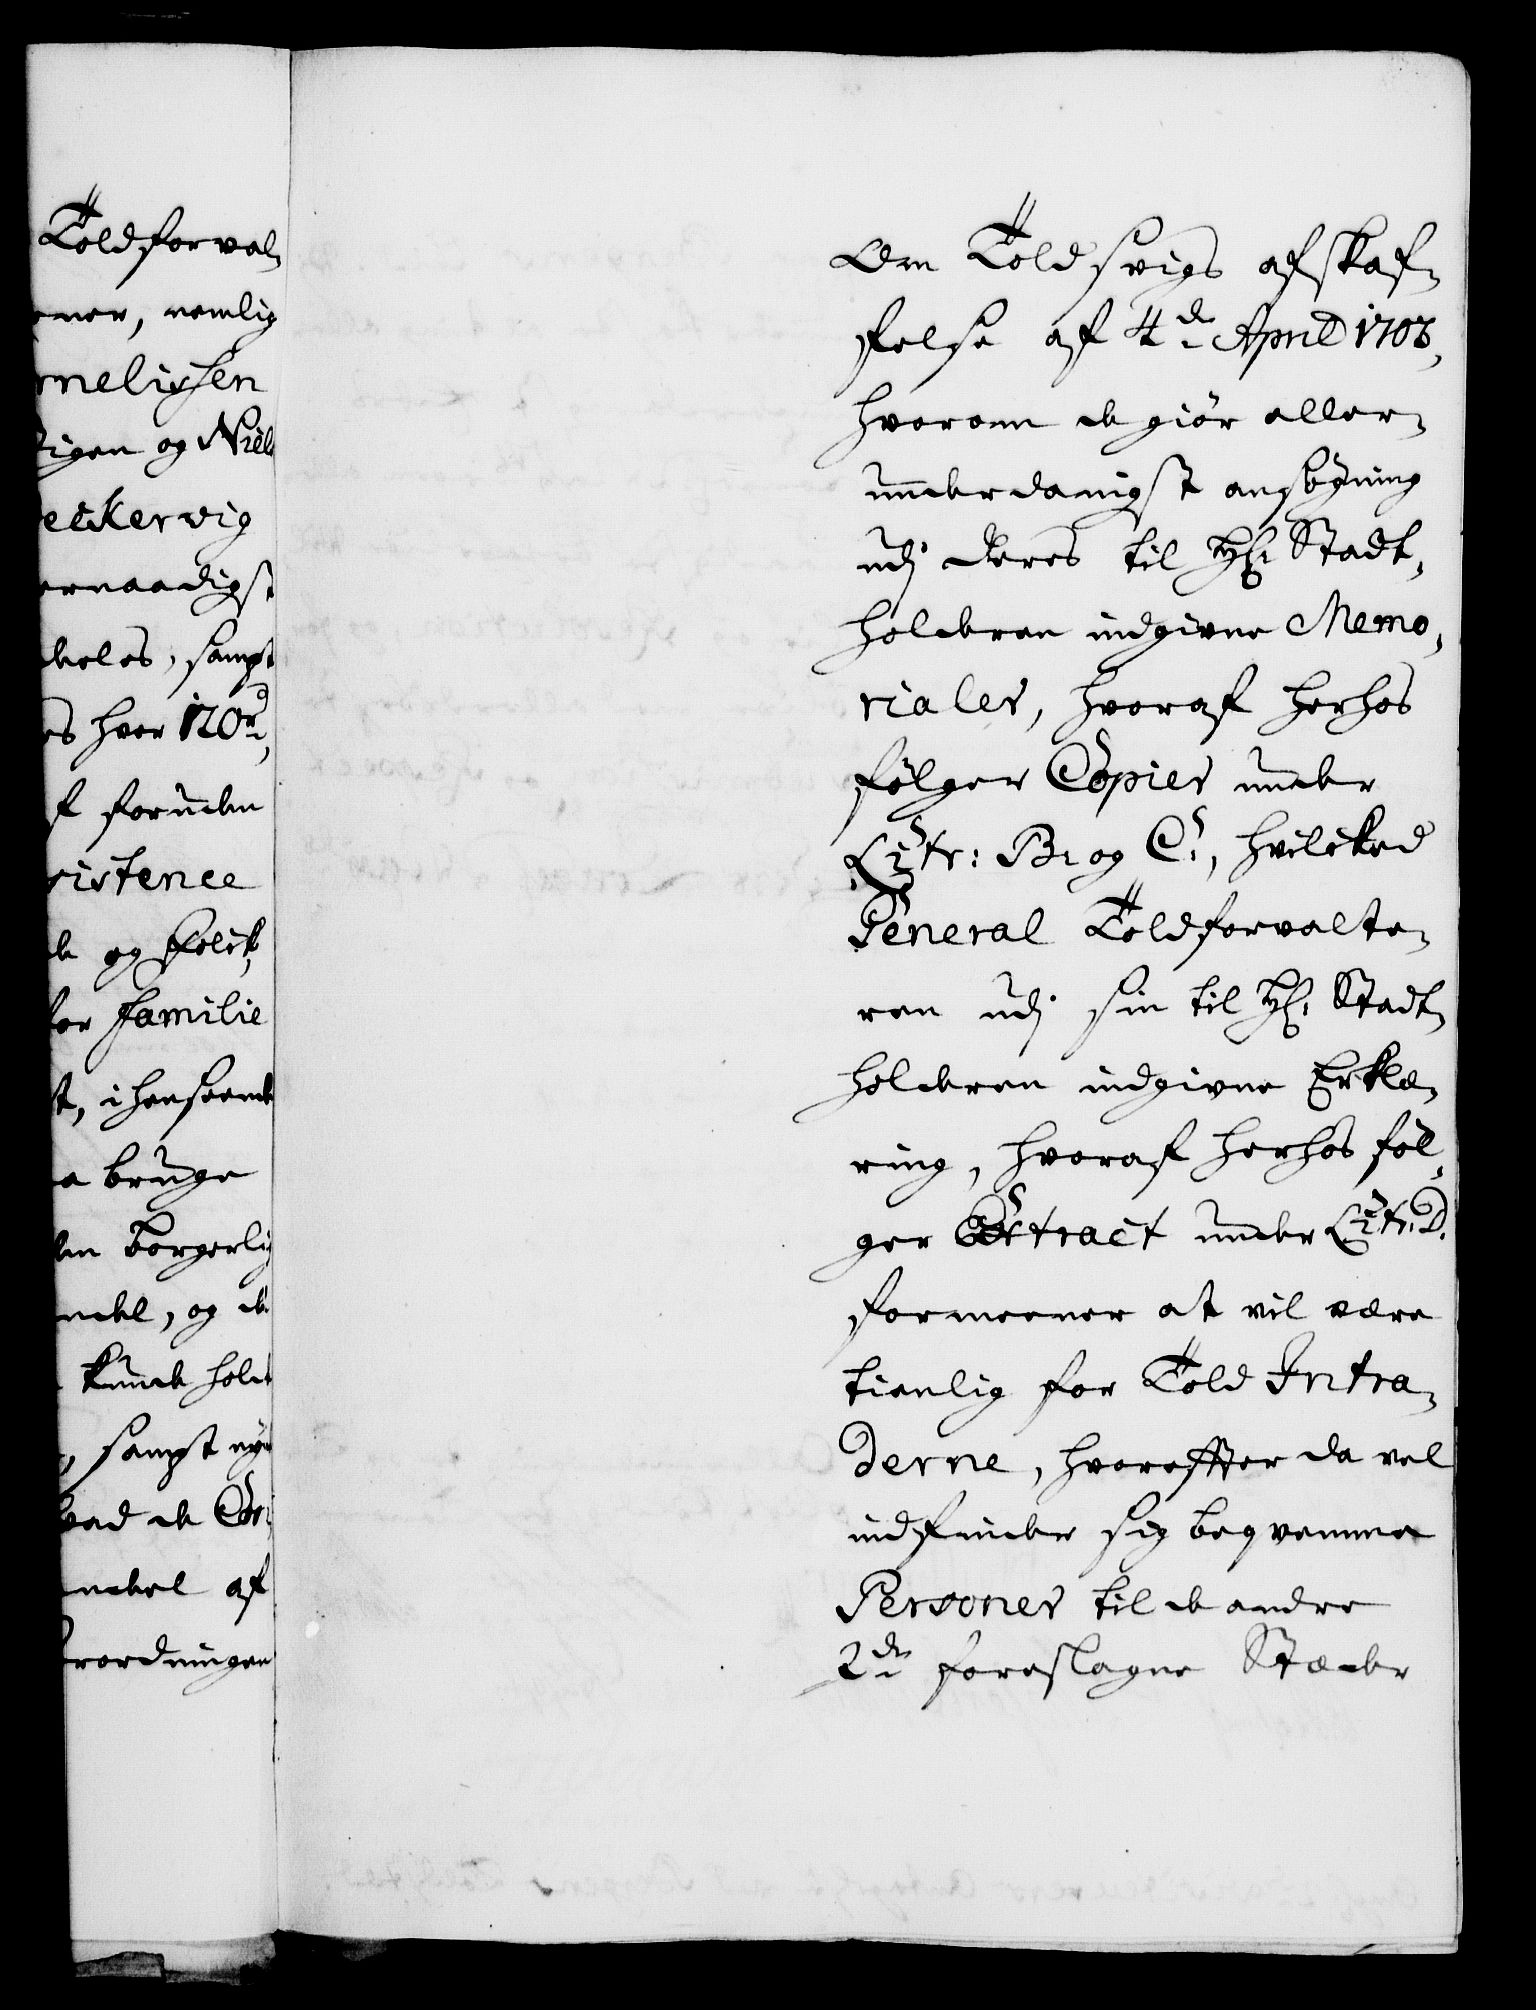 Toldforval-
ner, nemlig
rnelissen
igen og Niels
eckervig
ernaadigst
deeles, sampt
es hver 120 rd,
f foruden
sistence
de og Folck,
for Familie
st, i henseende
a bruge
den borgerlig
ndel, og de
kunde hold
, sampt ny
hvad de Con-
ndel af
rordningen
Om Toldsvigs afskaf-
felse af 4de April 1703,
hvorom de giør aller-
underdanigst ansøgning
udj deres til Hr. Stadt-
holderen indgivne Memo-
rialer, hvoraf herhos
følger Copier under
Litr: B: og C:, hvilcked
General Toldforvalte-
ren udj sin til Hr. Stadt-
holderen indgivne Erklæ-
ring, hvoraf herhos føl-
ger Extract under Litr: D.
formeener at vil være
tienlig for Told Intra-
derne, hvorefter da vel
indfinder sig beqvemme
Personer til de andre
2de foreslagne Stæder